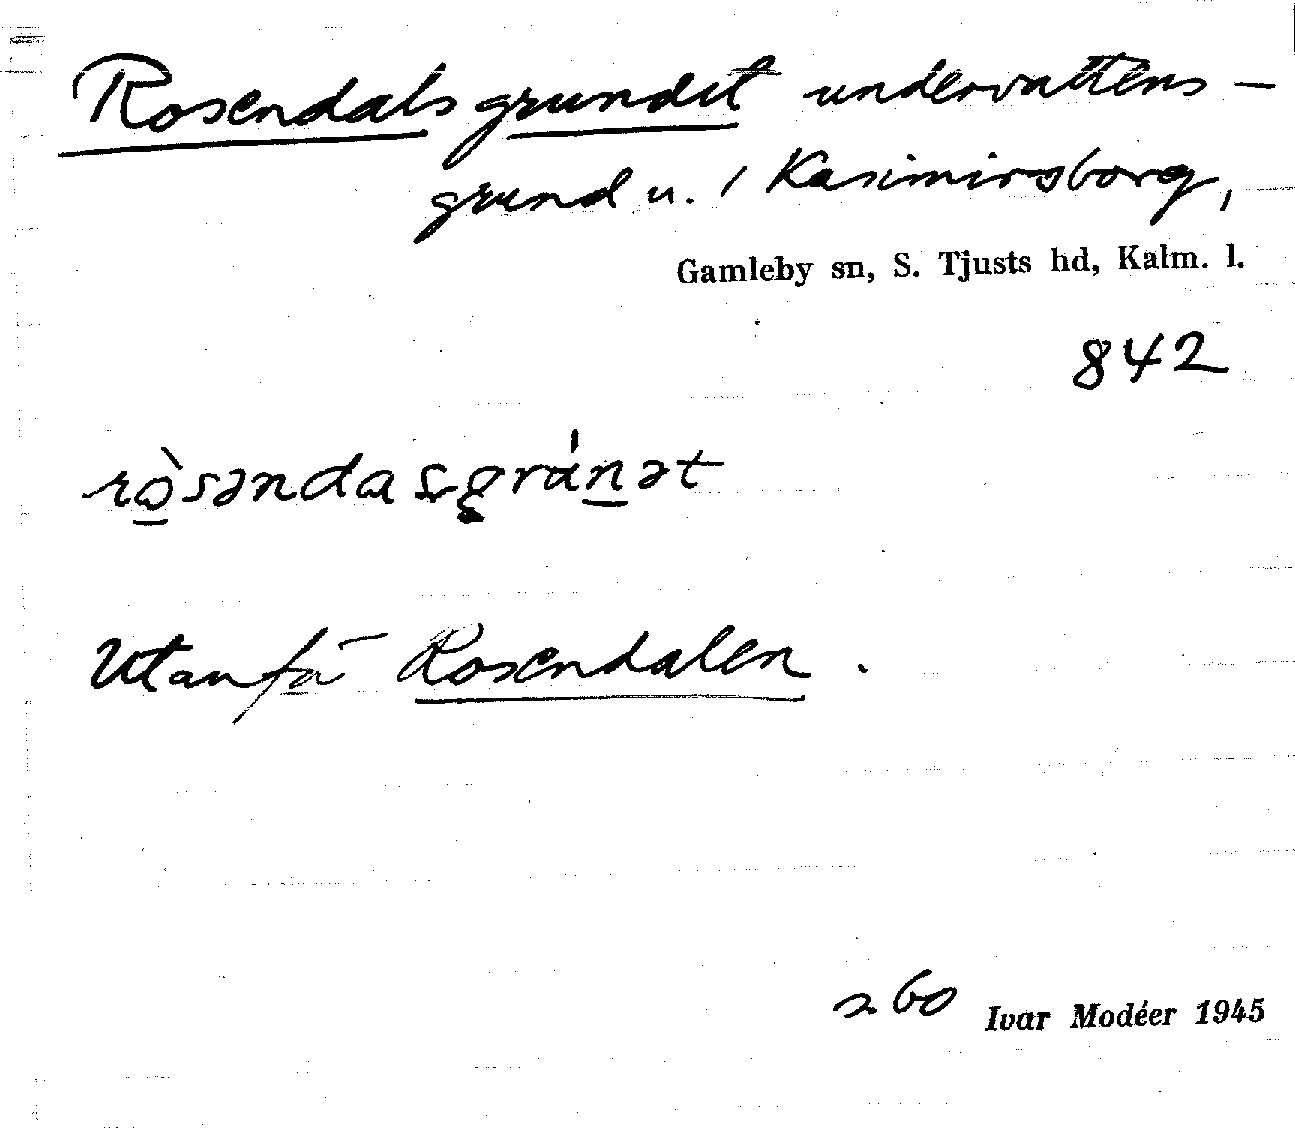 Rosendalsgrundet undervattens-
grund u. 1 Kasimirsborg,
Gamleby sn, S. Tjusts hd, Kalm. l.
842
Utanför Rosendalen.
260 Ivar Modéer 1945